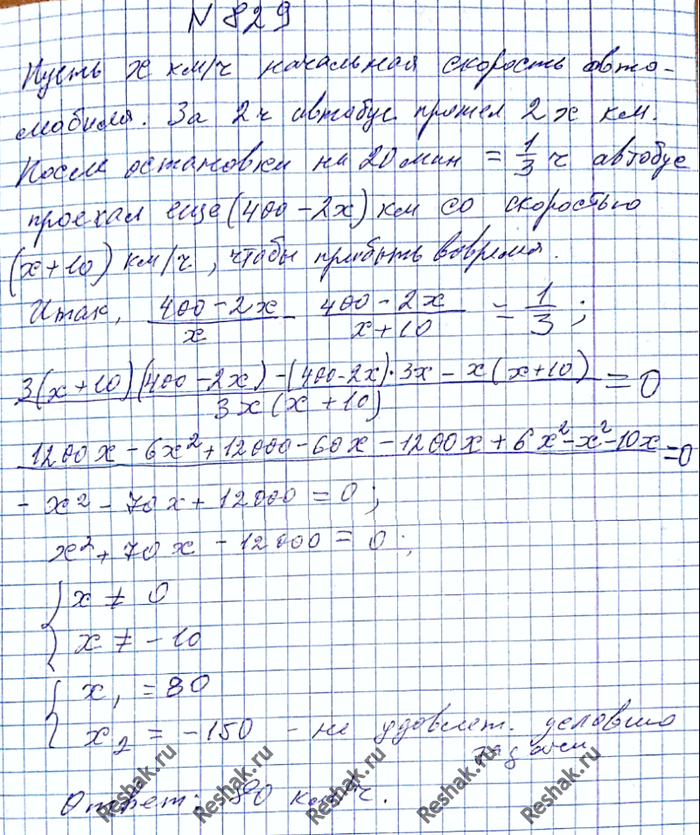 N 829
Пусть x км/ч начальная скорость авто-
мобиля. За 2 ч автобус прошел 2x км.
После остановки на 20 мин = 1/3 ч автобус
проехал еще (400 - 2x) км со скоростью
(x+10) км/ч, чтобы прибыть вовремя.
Итак, (400 - 2x)/x - (400 - 2x)/(x+10) = 1/3;
(3(x+10)(400-2x) - (400-2x)·3x - x(x+10))/(3x(x+10)) = 0
1200x - 6x² + 12000 - 60x - 1200x + 6x² - x² - 10x = 0
- x² - 70x + 12000 = 0;
x² + 70x - 12000 = 0;
{ x ≠ 0
x ≠ -10
{ x₁ = 80
x₂ = -150 - не удовлет. условию
задачи
Ответ: 80 км/ч.
Reshak.ru Reshak.ru Reshak.ru Reshak.ru Reshak.ru